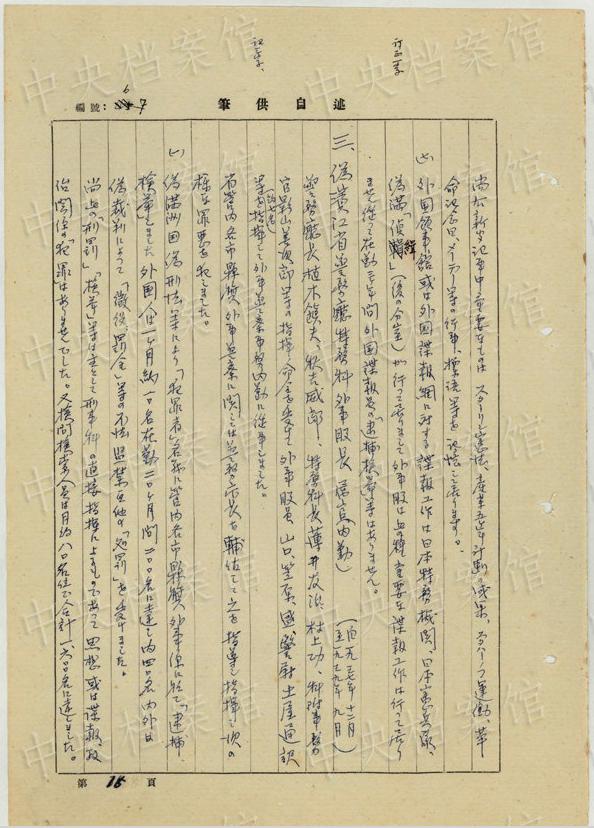 中央档案馆
訂正一字
記三字
述自供筆
編號：6 7
尚右新聞記事中重要なものは、スターリン憲法、産業五ヶ年計劃の成果、スタハーノフ運動、革
命記念日、メーデー等の行事、標語等を記憶して居ります。
外国領事館或は外国諜報網に対する諜報工作は日本特務機関、日本憲兵隊、
偽満「偵緝」（後の分室）が行って居りまして外事股は此の種重要な諜報工作は行って居り
ません 従って在勤二年間外国諜報員の「逮捕 検挙」等はありません。
三、偽濱江省警務廳特務科外事股長（自一九三七年十二月
至一九三九年九月）
警務廳長植木鎮夫、秋吉威郎、特務科長薄井友治、村上功、科附事務
官影山善次郎等の指揮、命令を受けて外事股員 山口、笠原、盛警尉 土屋通訳
等を指揮して外事警察事務内勤に従事しました。
省管内各市縣旗外事警察に関しては警務廳長を輔佐して之を指導し指揮し次の
様な罪悪を犯しました。
(一) 偽満洲国偽刑法等により「犯罪者」の名の下に管内各市縣旗外事係に於て「逮捕、
検挙」しました外国人は一ヶ月約一〇名在勤二〇ヶ月間二〇〇名に達し内四〇名内外は
偽裁判によって「懲役、罰金」等の不法 監禁其他の「処罰」を受けました。
尚此の「刑罰」「検挙」等は主として刑事科の直接指揮によるものであって思想或は諜報、政
治関係の「犯罪」はありませんでした。又検問検索人員は月約八〇名位で合計一六〇〇名に達しました。
第 15 頁